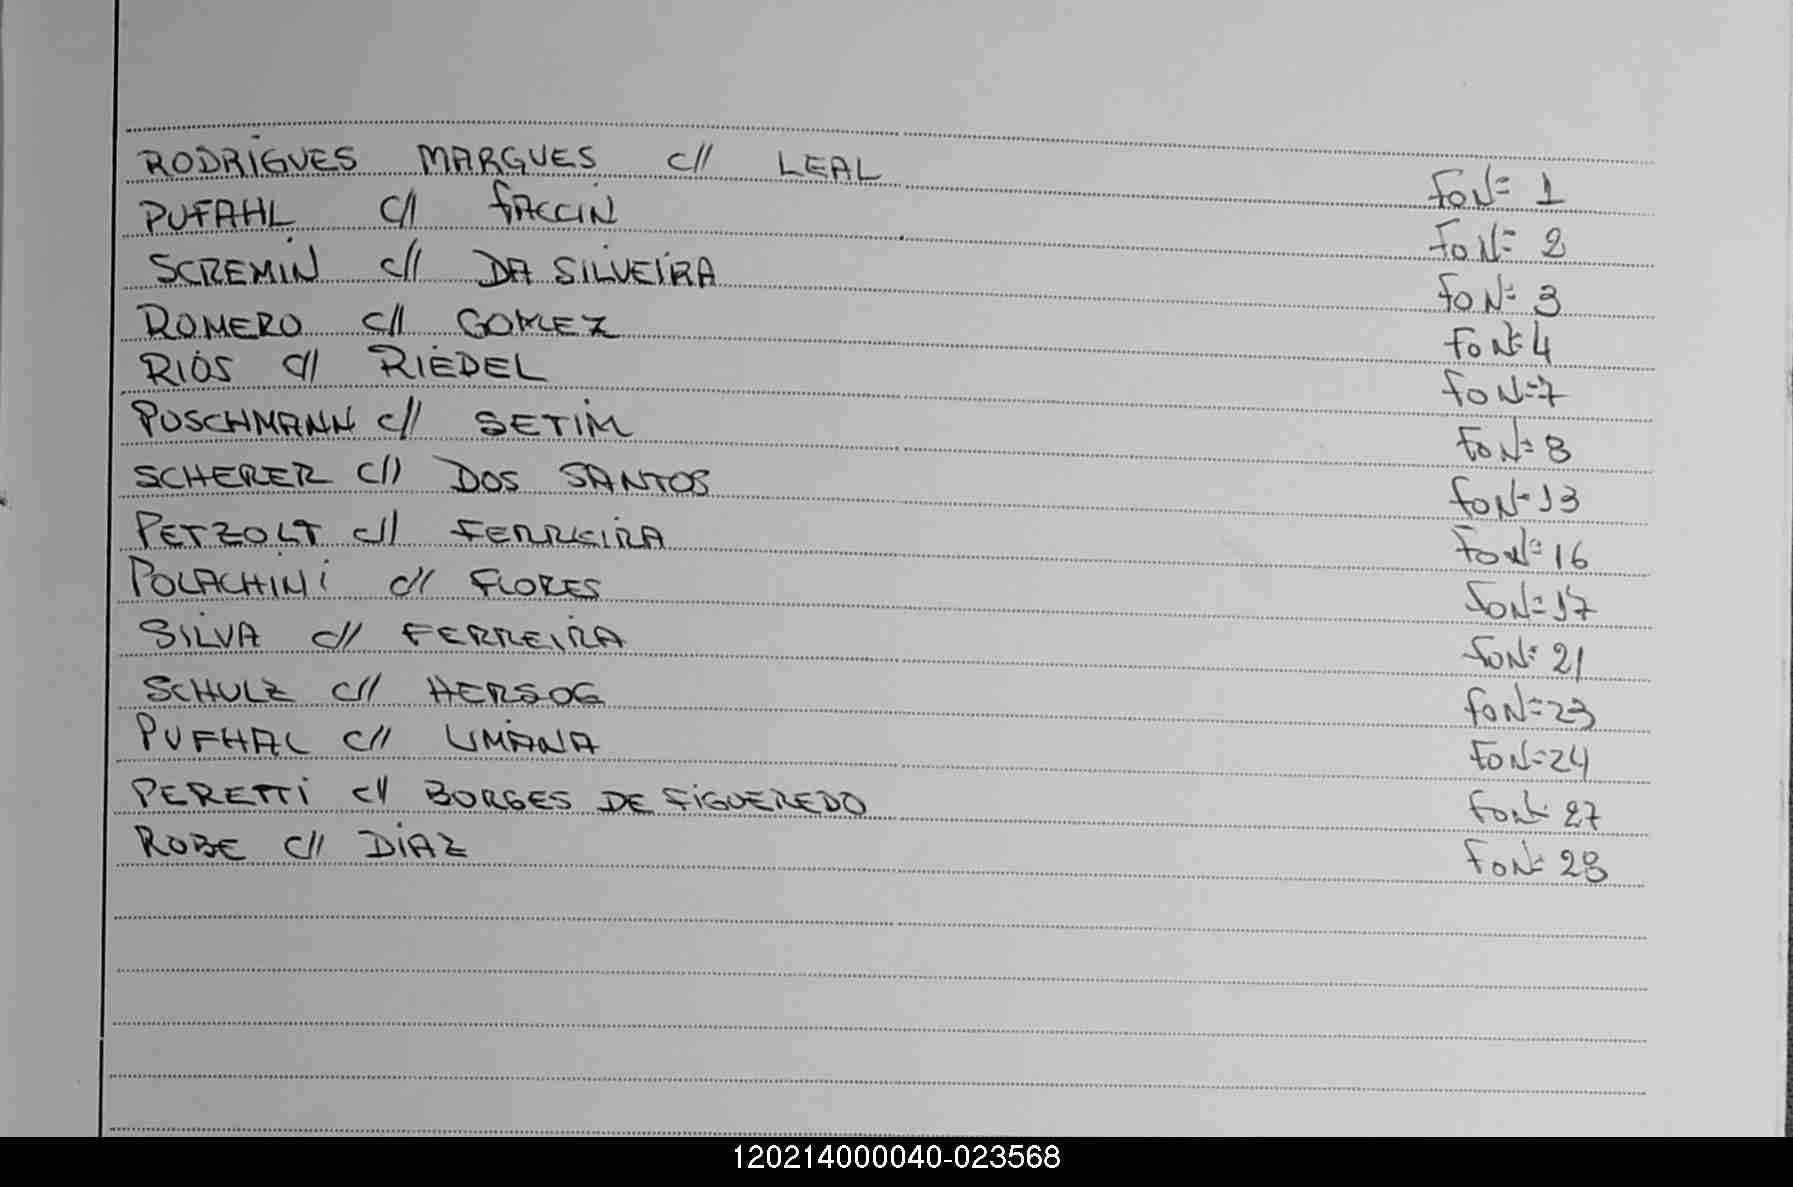 RODRIGUES MARGUES c// LEAL Fo Nº 1
PUFAHL c// FACCIN Fo Nº 2
SCREMIN c// DA SILVEIRA Fo Nº 3
ROMERO c// GOMEZ Fo Nº 4
RIOS c// RIEDEL Fo Nº 7
PUSCHMANN c// SETIM Fo Nº 8
SCHERER c// DOS SANTOS Fo Nº 13
PETZOLT c// FERREIRA Fo Nº 16
POLACHINI c// FLORES Fo Nº 17
SILVA c// FERREIRA Fo Nº 21
SCHULZ c// HERSOG Fo Nº 23
PUFHAL c// UMANA Fo Nº 24
PERETTI c// BORGES DE FIGUEREDO Fo Nº 27
ROBE c// DIAZ Fo Nº 28
120214000040-023568